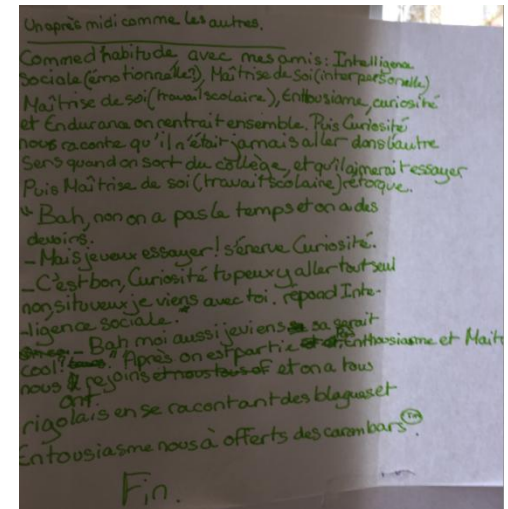 Un après midi comme les autres.
Comme d'habitude avec mes amis: Intelligence
Sociale (émotionnelle?), Maîtrise de soi (interpersonelle)
Maîtrise de soi (travail scolaire), Enthousiame, curiosité
et Endurance on rentrait ensemble. Puis Curiosité
nous raconte qu'il n'était jamais aller dans l'autre
sens quand on sort du collège, et qu'il aimerait essayer
Puis Maîtrise de soi (travail scolaire) rétorque.
"Bah, non on a pas le temps et on a des
devoirs.
- Mais je veux essayer! s'énerve Curiosité.
- C'est bon, Curiosité tu peux y aller tout seul
non, si tu veux je viens avec toi. répond Inte-
-ligence sociale.
- Bah moi aussi je viens sa serait
cool!" Après on est partie Enthousiasme et Maît
nous rejoins et nous tous et on a tous
ont
rigolais en se racontant des blagues et
Entousiasme nous à offerts des carambars.
Fin
Fin.